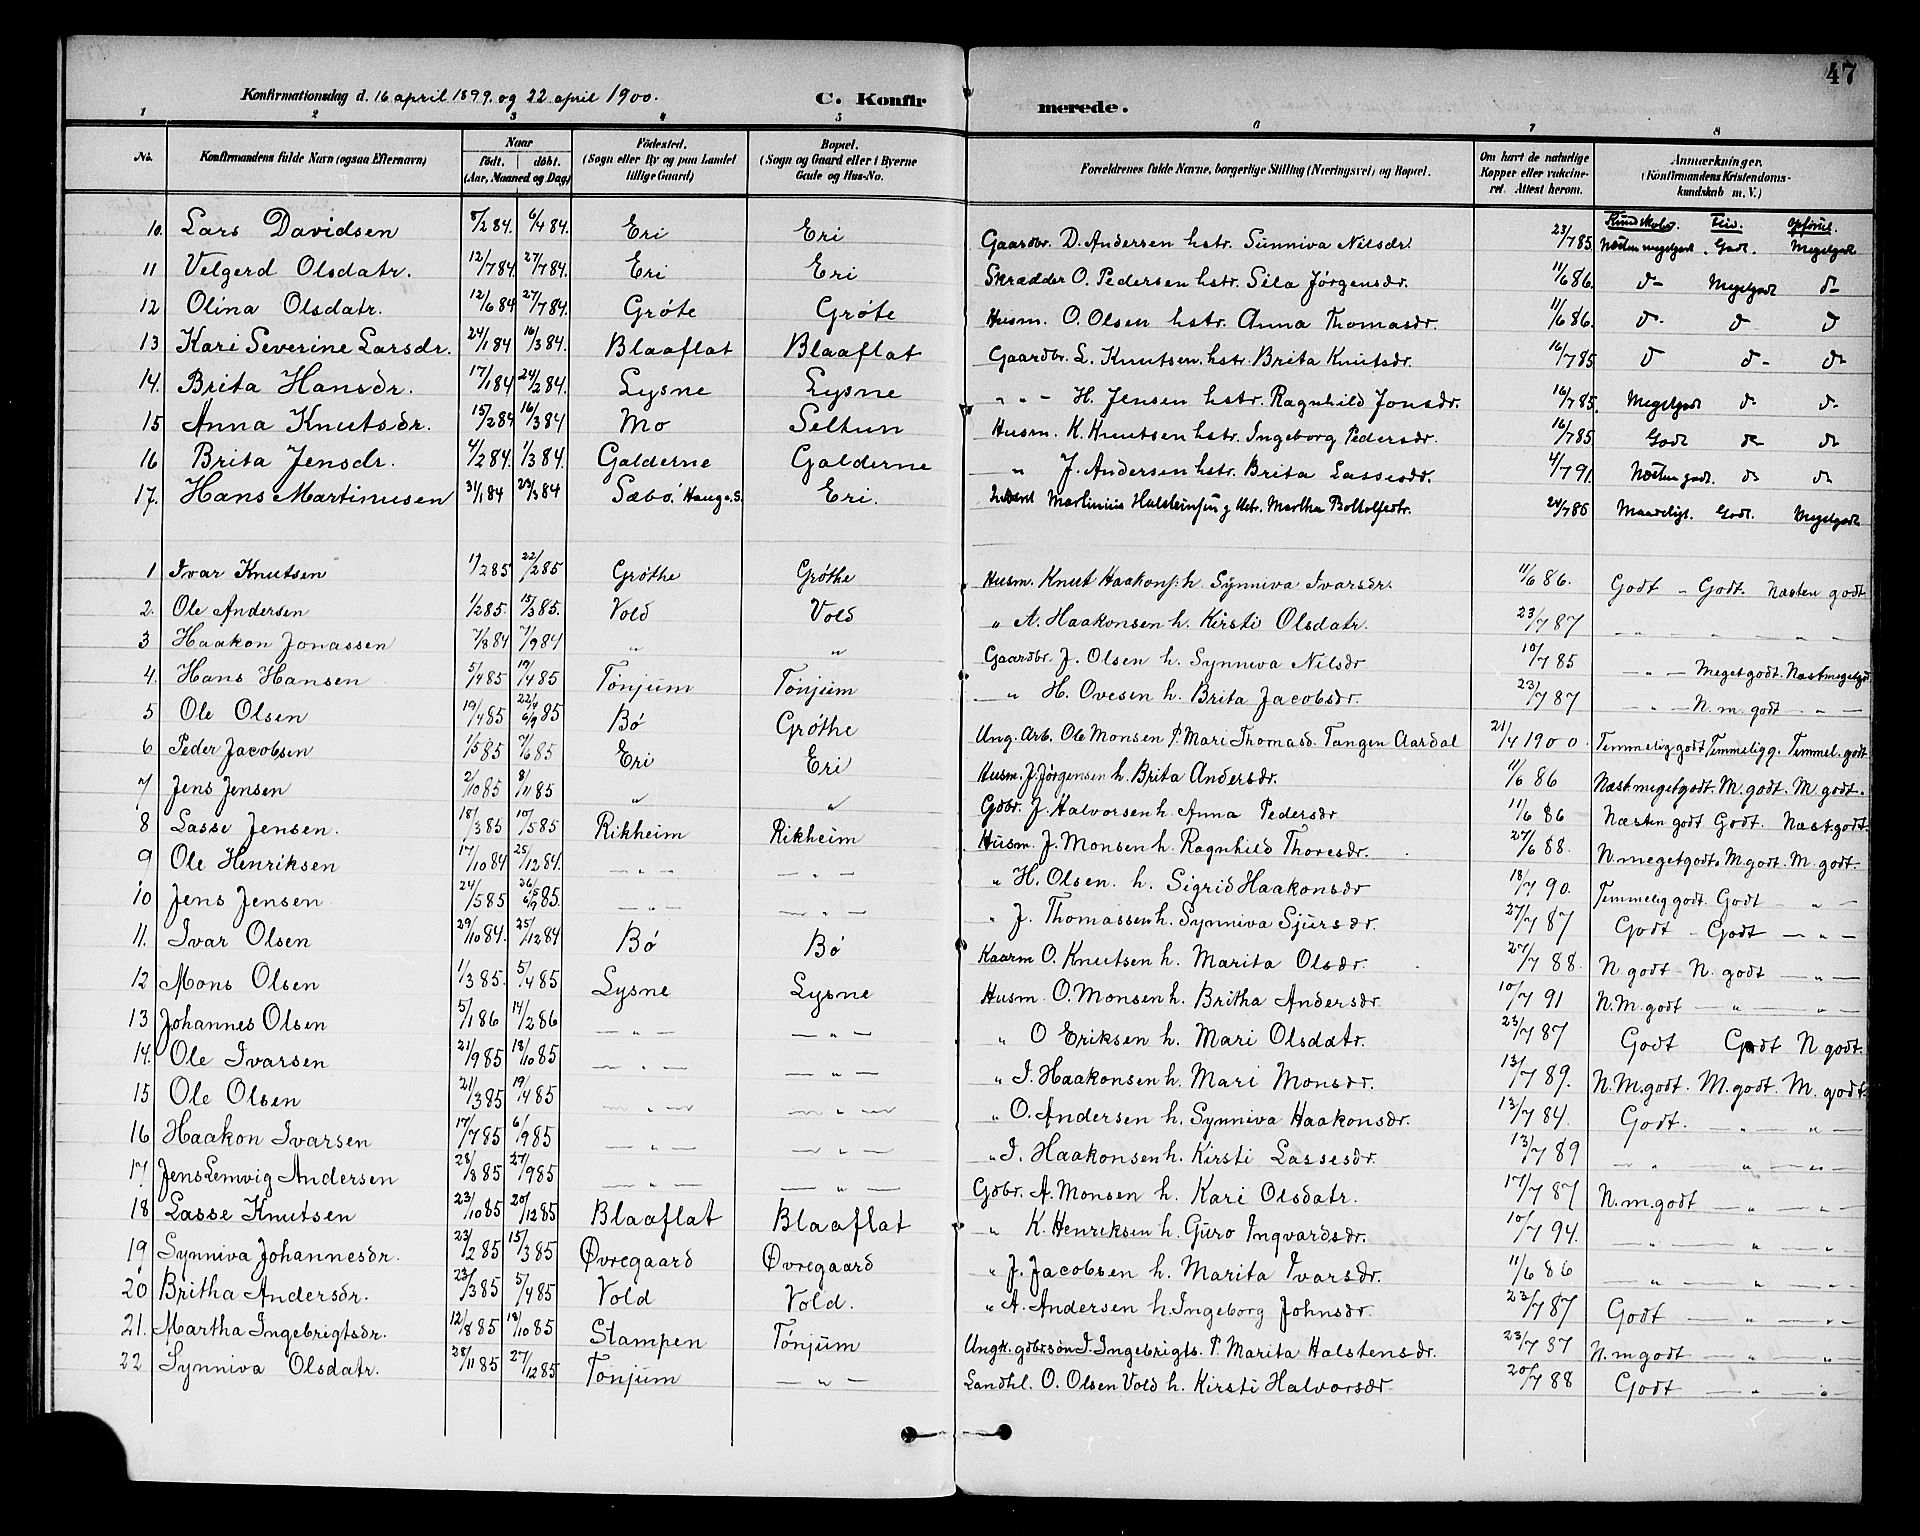 47
Konfirmationsdag d. 16 april 1899. og 22 april 1900.
C. Konfirmerede.
1 2 3 4 5 6 7 8
No. Konfirmandens fulde Navn (ogsaa Efternavn) Naar født. døbt. (Aar, Maaned og Dag) Fødested. (Sogn eller By og paa Landet tillige Gaard) Bopæl. (Sogn og Gaard eller i Byerne Gade og Hus-No. Forældrenes fulde Navne, borgerlige Stilling (Næringsvei) og Bopæl. Om havt de naturlige Kopper eller vakcineret. Attest herom. Anmærkninger. (Konfirmandens Kristendomskundskab m. V.)
Kundskab. Flid. Opførsl.
10. Lars Davidsen 8/2 84. 6/4 84. Eri Eri Gaardbr. D. Andersen hstr. Sunniva Nilsdr. 23/7 85. Næsten megetgodt. Godt. Megetgodt
11 Velgerd Olsdatr. 12/7 84. 27/7 84. Eri Eri Skrædder O. Pedersen hstr. Sila Jørgensdr. 11/6 86. d- Megetgodt d-
12 Olina Olsdatr. 12/6 84. 27/7 84. Grøte Grøte Husm. O. Olsen hstr. Anna Thomasdr. 11/6 86. d- d d
13 Kari Severine Larsdr. 24/1 84 16/3 84. Blaaflat Blaaflat Gaardbr. L. Knutsen. hstr. Brita Knutsdr. 16/7 85 d d- d-
14. Brita Hansdr. 17/1 84 24/2 84. Lysne Lysne " " - H. Jensen hstr. Ragnhild Jonsdr. 16/7 85. Megetgodt d- d-
15 Anna Knutsdr. 15/2 84 16/3 84 Mo Seltun Husm. K. Knutsen hstr. Ingeborg Pedersdr. 16/7 85 Godt d- d-
16 Brita Jensdr. 4/2 84. 1/3 84. Galderne Galderne " J. Andersen hstr. Brita Lassesdr. 4/7 91. Næsten godt. d- d-
17. Hans Martinusen 31/1 84 23/3 84 Sæbø, Haugs S. Eri. Martinius Halsteinsen g Hstr. Martha Bottolfsdtr. 24/7 86 Maadeligt. Godt. Megetgodt
1 Ivar Knutsen 1/2 85 22/2 85 Grøthe Grøthe Husm. Knut Haakons: h. Synniva Ivarsdr. 11/6 86. Godt - Godt. Næsten godt
2. Ole Andersen 1/2 85. 15/3 85. Vold Vold " A. Haakonsen h. Kirsti Olsdatr. 23/7 87 — " — " — " —
3 Haakon Jonassen 7/8 84 7/9 84 " " Gaardbr. J. Olsen h. Synniva Nilsdr 10/7 85 — " — Megetgodt. Næst megetgodt
4. Hans Hansen 5/4 85 19/4 85 Tønjum Tønjum — " H. Ovesen h. Brita Jacobsdr. 23/7 87 — " — N. m. godt — " —
5 Ole Olsen 19/4 85 22/4 6/9 85 Bø Grøthe Ung. Arb. Ole Monsen P. Mari Thomasd. Tangen Aardal 21/4 1900. Temmelig godt Temmelig g. Temmel. godt
6 Peder Jacobsen 1/5 85 7/6 85 Eri Eri Husm. J. Jørgensen h. Brita Andersdr. 11/6 86 Næst megetgodt. M. godt. M. godt.
7 Jens Jensen 2/10 85 8/11 85 " " Gdbr. J. Halvorsen h. Anna Pedersdr 11/6 86 Næsten godt Godt. Næst. godt.
8 Lasse Jensen. 18/3 85 10/5 85 Rikheim Rikheim Husm. J. Monsen h. Ragnhild Thoresdr. 27/6 88. N. megetgodt. M. godt. M. godt.
9 Ole Henriksen 17/10 84 25/12 84. — " — — " — " H. Olsen. h. Sigrid Haakonsdr 18/7 90. Temmelig godt. Godt — " —
10 Jens Jensen 24/5 85 26/5 6/9 85. — " — — " — " J. Thomassen h. Synniva Sjursdr. 27/7 87 Godt - Godt — " —
11. Ivar Olsen 29/10 84. 25/12 84 Bø Bø Kaarm O. Knutsen h. Marita Olsdr. 27/7 88. N. godt - N. godt — " —
12 Mons Olsen 1/3 85. 5/4 85 Lysne Lysne Husm. O. Monsen h. Britha Andersdr. 10/7 91 N. M. godt — " — " —
13 Johannes Olsen 5/1 86 14/2 86 — " — — " — " O Eriksen h. Mari Olsdatr. 23/7 87 Godt Godt N. godt.
14. Ole Ivarsen 21/9 85 18/10 85 — " — — " — " I. Haakonsen h. Mari Monsdr. 13/7 89. N. M. godt. M. godt. M. godt.
15 Ole Olsen 21/3 85 19/4 85 — " — — " — " O. Andersen h. Synniva Haakonsdr. 13/7 84. Godt. — " — " —
16 Haakon Ivarsen 17/7 85 6/9 85 — " — — " — " I. Haakonsen h. Kirsti Lassesdr. 13/7 89 — " — " — " —
17. Jens Lemvig Andersen 28/8 85 27/9 85 — " — — " — Gdbr. A. Monsen h. Kari Olsdatr. 17/7 87 N. m. godt — " — " —
18 Lasse Knutsen 23/10 85 20/12 85 Blaaflat Blaaflat " K. Henriksen h. Guro Ingvardsdr. 10/7 94. — " — " — " —
19 Synniva Johannesdr. 23/2 85 15/3 85 Øvregaard Øvregaard " J. Jacobsen h. Marita Ivarsdr. 11/6 86 — " — " — " —
20 Britha Andersdr. 23/3 85 5/4 85 Vold Vold. " A. Andersen h. Ingeborg Johnsdr. 23/7 87 Godt — " — " —
21. Martha Ingebrigtsdr. 12/8 85 18/10 85 Stampen Tønjum Ungk. gdbrsøn I. Ingebrigts. P. Marita Halstensdr. 23/7 87 N. m. godt — " — " —
22 Synniva Olsdatr. 28/11 85 27/12 85 Tønjum — " — Landhl. O. Olsen Vold h. Kirsti Halvorsdr. 20/7 88 Godt — " — " —